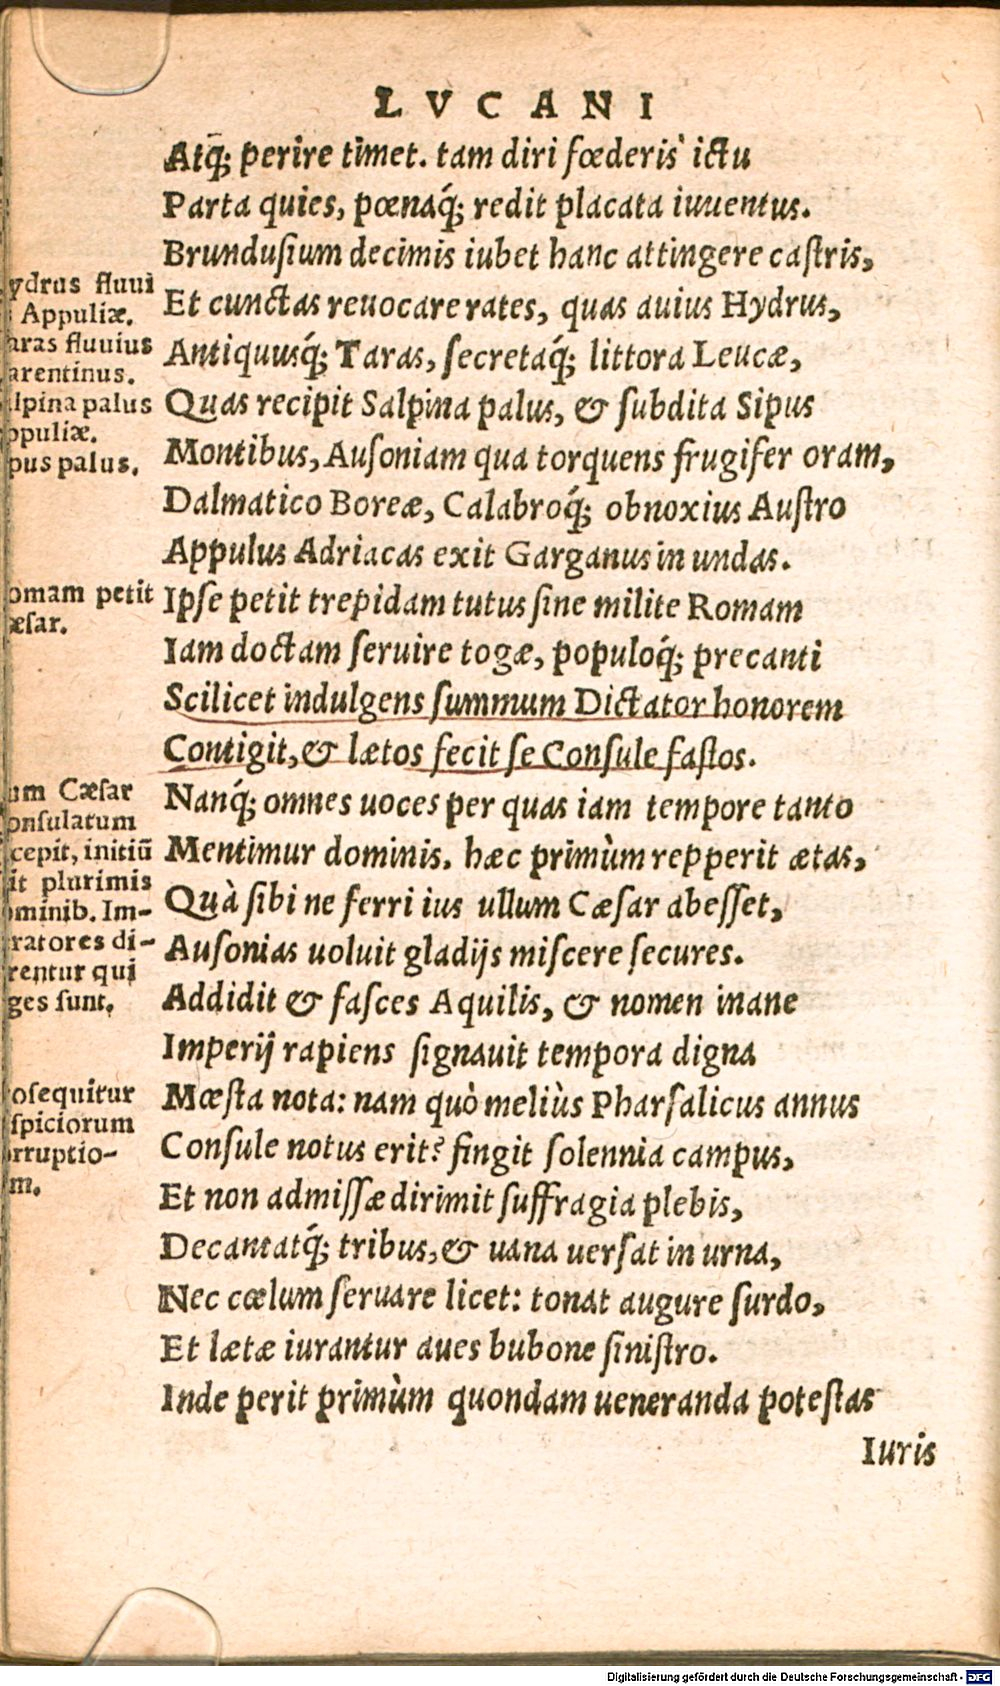 LVCANI
Atq́; perire timet. tam diri fœderis ictu
Parta quies, pœnaq́; redit placata iuuentus.
Brundusium decimis iubet hanc attingere castris,
Et cunctas reuocare rates, quas auius Hydrus,
Antiquusq́; Taras, secretaq́; littora Leucæ,
Quas recipit Salpina palus, & subdita Sipus
Montibus, Ausoniam qua torquens frugifer oram,
Dalmatico Boreæ, Calabroq́; obnoxius Austro
Appulus Adriacas exit Garganus in undas.
Ipse petit trepidam tutus sine milite Romam
Iam doctam seruire togæ, populoq́; precanti
Scilicet indulgens summum Dictator honorem
Contigit, & lætos fecit se Consule fastos.
Nanq́; omnes uoces per quas iam tempore tanto
Mentimur dominis. hæc primùm repperit ætas,
Quà sibi ne ferri ius ullum Cæsar abesset,
Ausonias uoluit gladijs miscere secures.
Addidit & fasces Aquilis, & nomen inane
Imperij rapiens signauit tempora digna
Mœsta nota: nam quò meliùs Pharsalicus annus
Consule notus erit? fingit solennia campus,
Et non admissæ dirimit suffragia plebis,
Decantatq́; tribus, & uana uersat in urna,
Nec cœlum seruare licet: tonat augure surdo,
Et lætæ iurantur aues bubone sinistro.
Inde perit primùm quondam ueneranda potestas
Iuris
ydrus fluui
Appuliæ.
aras fluuius
arentinus.
lpina palus
ppuliæ.
pus palus.
omam petit
æsar.
um Cæsar
onsulatum
cepit, initiũ
it plurimis
minib. Im-
ratores di-
rentur qui
ges sunt.
osequitur
spiciorum
rruptio-
m.
Digitalisierung gefördert durch die Deutsche Forschungsgemeinschaft - DFG